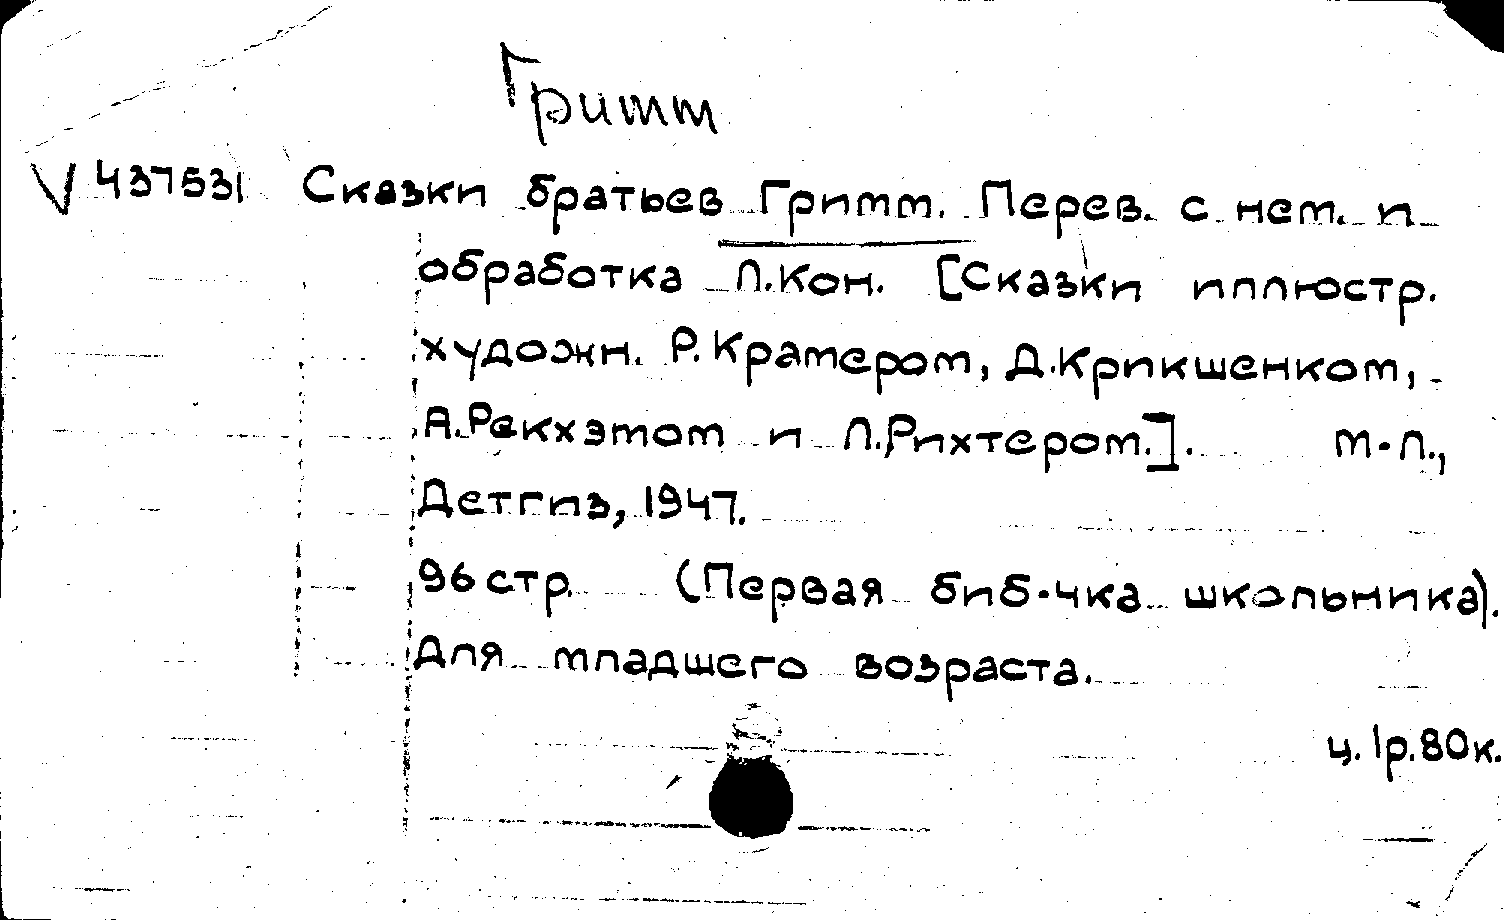 Гримм
V 437531 Сказки братьев Гримм. Перев. с нем. и
обработка Л.Кон. [Сказки иллюстр.
художн. Р.Крамером, Д.Крикшенком,
А.Рекхэмом и Л.Рихтером.]. М-Л.,
Детгиз, 1947.
96 стр. (Первая биб-чка школьника).
Для младшего возраста.
ц. 1р.80к.